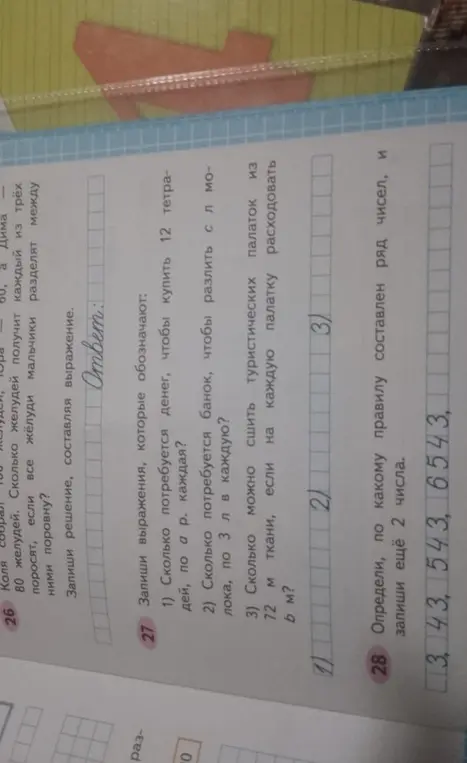 26 Коля собрал
80 желудей. Сколько желудей получит каждый из трёх
поросят, если все жёлуди мальчики разделят между
ними поровну?
Запиши решение, составляя выражение.
Ответ:
27 Запиши выражения, которые обозначают:
1) Сколько потребуется денег, чтобы купить 12 тетра-
дей, по а р. каждая?
2) Сколько потребуется банок, чтобы разлить с л мо-
лока, по 3 л в каждую?
3) Сколько можно сшить туристических палаток из
72 м ткани, если на каждую палатку расходовать
b м?
1) 2) 3)
28 Определи, по какому правилу составлен ряд чисел, и
запиши ещё 2 числа.
3, 43, 543, 6543,
раз-
0